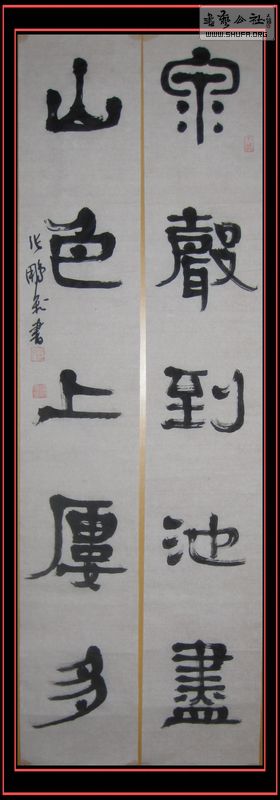 書藝公社
WWW.SHUFA.ORG
泉聲到池盡
山色上屢多
张鵬飛書